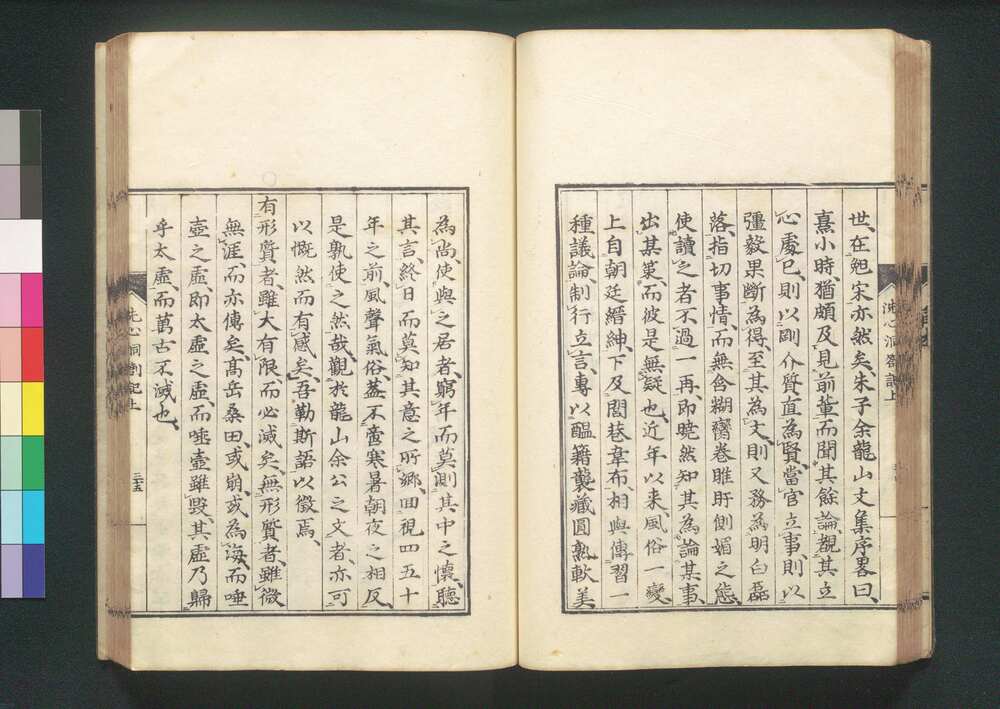 世、在絶宋亦然矣、朱子余龍山文集序畧曰、
熹小時猶頗及見前輩而聞其餘論、觀其立
心處巳、則以剛介質直為賢、當官立事、則以
彊毅果斷為得、至其為文、則又務為明白磊
落、指切事情、而無含糊臠卷睢盱側媚之態、
使讀之者不過一再、即曉然知其為論某事、
出某策、而彼是無疑也、近年以來、風俗一變、
上自朝廷縉紳、下及閭巷韋布、相與傳習一
種議論、制行立言、專以醞籍襲藏圓熟軟美
為尚、使與之居者、窮年而莫測其中之懷、聽
其言、終日而莫知其意之所郷、回視四五十
年之前、風聲氣俗、葢不啻寒暑朝夜之相反、
是孰使之然哉、觀於龍山余公之文者、亦可
以慨然而有感矣、吾勒斯語以徴焉、
有形質者、雖大有限而必滅矣、無形質者、雖微
無涯、而亦傳矣、髙岳桑田、或崩或為海、而唾
壺之虛、即太虛之虛、而唾壺雖毀、其虛乃歸
乎太虛、而萬古不滅也、
洗心洞劄記上
三十五
洗心洞劄記上